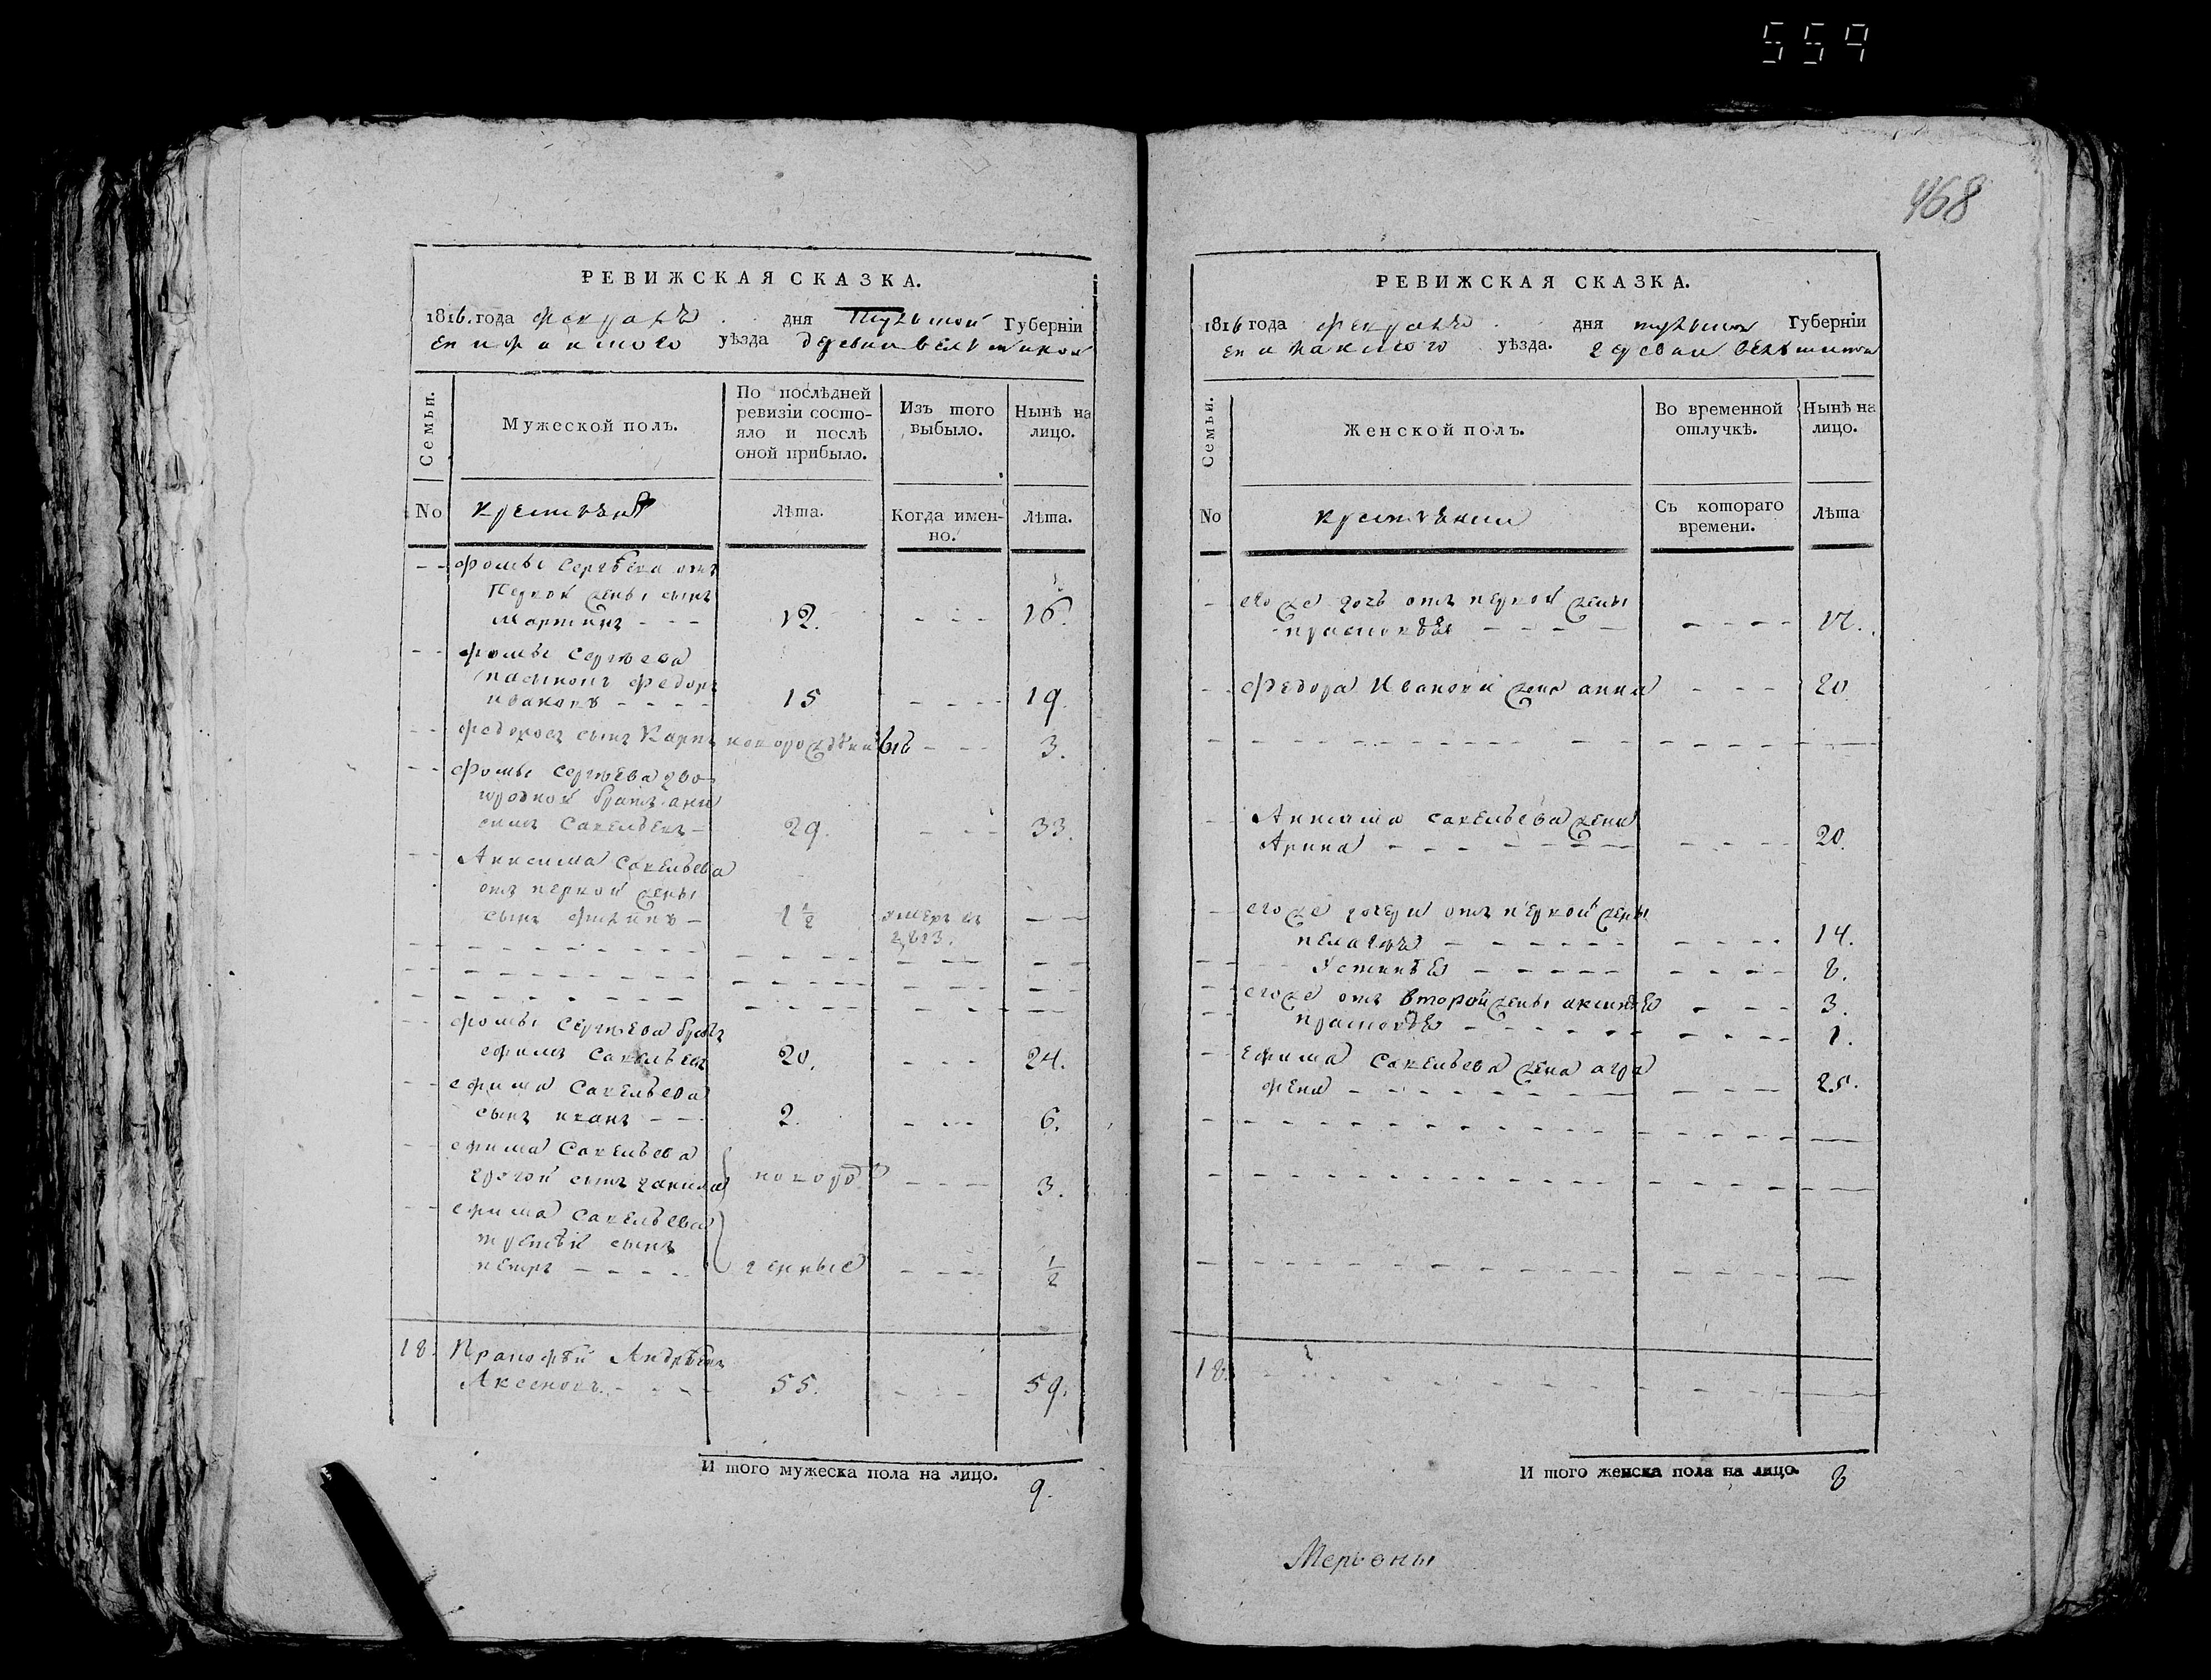 559
468
РЕВИЖСКАЯ СКАЗКА.
1816. года февраля дня Тульской Губернїи
епифанского уѣзда деревни
Семьи.
Мужеской полъ.
По послѣдней
ревизїи состо-
яло и послѣ
оной прибыло.
Изъ того
выбыло.
Нынѣ на
лицо.
No
крестьянѣ
лѣта.
Когда имен-
но.
лѣта.
фомы Сергѣева отъ
Первой жены сынъ
Мартинъ - - - 12. - - - 16.
фомы Сергѣева
пасынокъ федоръ
ивановъ - - - - 15 - - - - 19.
федоровъ сынъ Карпъ новорожденный - - - 3.
фомы Сергѣева дво-
юродной братъ ани
симъ Савельевъ - 29. - - - 33.
Анисима Савельева
отъ первой жены
сынъ филипъ - 1 1/2 умеръ въ - -
1813.
фомы Сергѣева братъ
ефимъ Савельевъ 20. - - - 24.
ефима Савельева
сынъ иванъ - - 2. - - - 6.
ефима Савельева
другой сынъ данила новорож - - - 3.
ефима Савельева
третьй сынъ
петръ - - - - - денные - - - 1/2
18. Пракофѣй Андрѣевъ
Аксеновъ. - - - 55. - - - 59.
И того мужеска пола на лицо. 9.
РЕВИЖСКАЯ СКАЗКА.
1816 года февраля дня тульской Губернїи
епифанского уѣзда. деревни
Семьи.
Женской полъ.
Во временной
отлучкѣ.
Нынѣ на
лицо.
No
крестьянки
Съ котораго
времени.
лѣта
его же дочь отъ первой жены
прасковья - - - - - - - - 17.
федора Иванова жена анна - - - 20
Анисима савельева жена
Арина - - - - - - - - - - - 20.
его же дочери отъ первой жены
пелагея - - - - - - - - - - 14.
Устинья - - - - - - - - - 8.
его же отъ второй жены аксинья - - - 3.
прасковья - - - - - - - - - - 1.
ефима Савельева жена агра
фена - - - - - - - - - - - 25.
18.
И того женска пола на лицо. 8